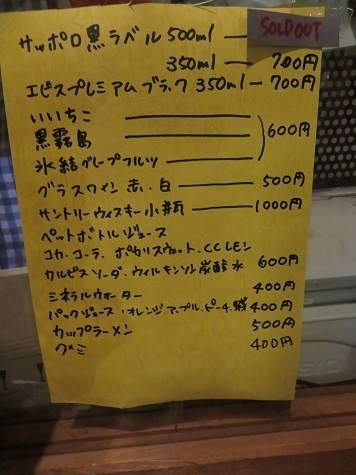 サッポロ黒ラベル 500ml — SOLDOUT
350ml — 700円
エビスプレミアムブラック 350ml — 700円
いいちこ
黒霧島 600円
氷結グレープフルーツ
グラスワイン 赤、白 500円
サントリーウィスキー小瓶 1000円
ペットボトルジュース
コカ・コーラ、ポカリスウェット、CCレモン
カルピスソーダ、ウィルキンソン炭酸水 600円
ミネラルウォーター 400円
パックジュース・オレンジ、アップル、ピーチ、 400円
カップラーメン 500円
グミ 400円